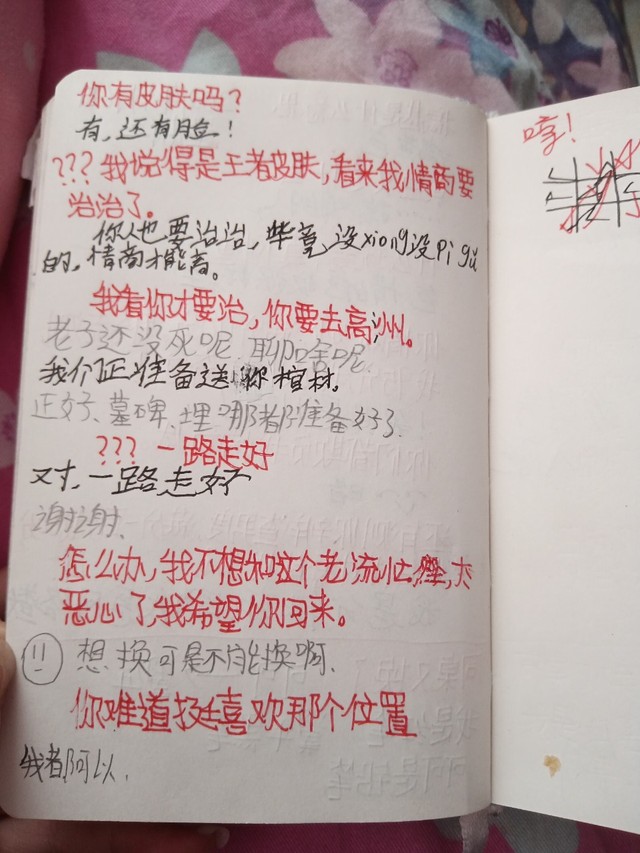 你有皮肤吗？
有，还有脸！
？？？我说得是王者皮肤，看来我情商要
治治了。
你人也要治治，毕竟没xiong没pigu
的，情商才能高。
我看你才要治，你要去高州。
老子还没死呢，聊啥呢。
我们正准备送你棺材。
正好、墓碑、埋哪都准备好了。
？？？一路走好
对，一路走好
谢谢、
怎么办，我不想和这个老流氓，太
恶心了，我希望你回来。
想换可是不能换啊、
你难道挺喜欢那个位置
我都可以、
哼！